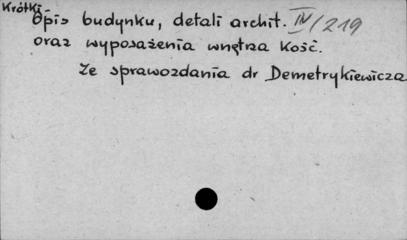 Krótki
opis budynku, detali archit. IV/219
oraz wyposażenia wnętrza Kość.
Ze sprawozdania dr Demetrykiewicza